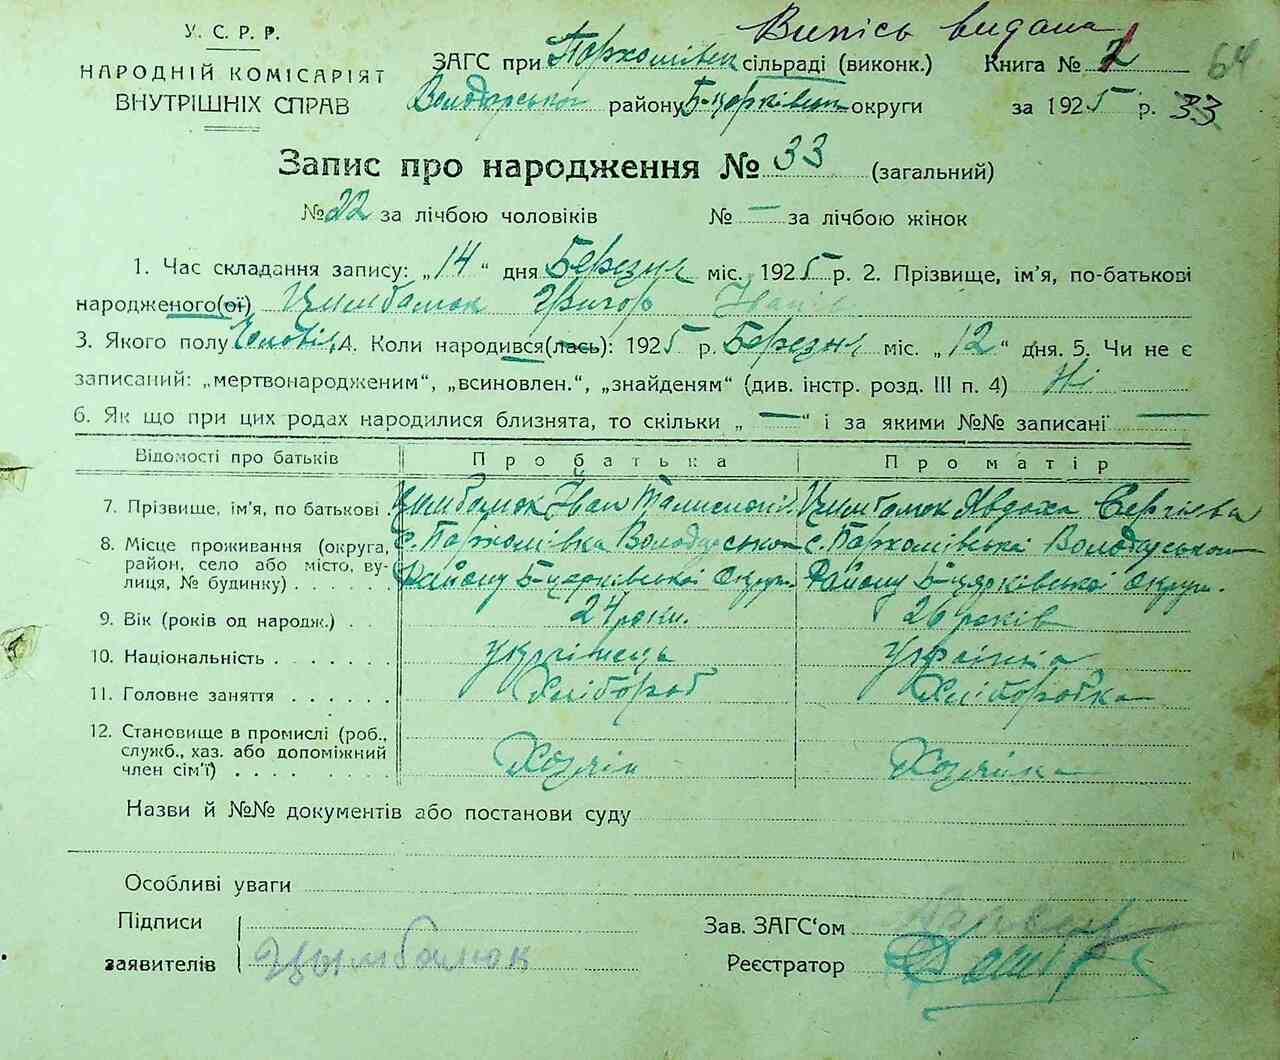 Випись видана
У. С. Р. Р.
НАРОДНІЙ КОМІСАРІЯТ
ВНУТРІШНІХ СПРАВ
ЗАГС при Пархомівськ сільраді (виконк.) Книга № 2 64
Володарського району Б-Церківськ округи за 1925 р. 33
Запис про народження № 33 (загальний)
№ 22 за лічбою чоловіків № — за лічбою жінок
1. Час складання запису: „14“ дня Березня міс. 1925 р. 2. Прізвище, ім'я, по-батькові
народженого(ої) Цимбалюк Григор Іванів
3. Якого полу Чоловіч. 4. Коли народився(лась): 1925 р. Березня міс. „12“ дня. 5. Чи не є
записаний: „мертвонародженим“, „всиновлен.“, „знайденям“ (див. інстр. розд. III п. 4) Ні
6. Як що при цих родах народилися близнята, то скільки „—“ і за якими №№ записані —
Відомості про батьків Про батька Про матір
7. Прізвище, ім'я, по батькові . Цимбалюк Іван Цимбалюк Явдоха Сергієва
8. Місце проживання (округа, с. Пархомівка Володарського с. Пархомівка Володарського
район, село або місто, вулиця, № будинку) . . . . Району Б-церківської Округи. Району Б-церківської Округи.
9. Вік (років од народж.) . 24 роки. 26 років
10. Національність . . . . . . . українець Україніка
11. Головне заняття . . . . . Хлібороб Хліборобка
12. Становище в промислі (роб.,
служб., хаз. або допоміжний
член сім'ї) . . . . . Хозяїн Хозяйка
Назви й №№ документів або постанови суду
Особливі уваги
Підписи Зав. ЗАГС'ом
заявителів Цымбалюк Реєстратор